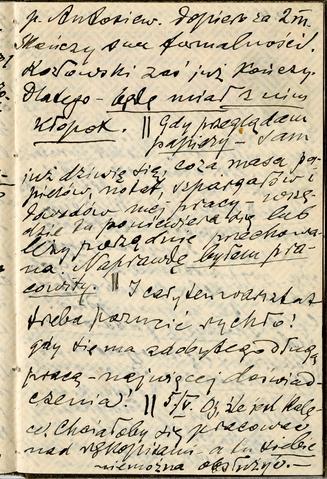 p. Antoniew. dopiero za 2 m.
kończy swe formalności.
Kozłowski zaś już kończy.
Dlatego - będę miał z nim
kłopot. || Gdy przeglądam
papiery - sam
już dziwię się, coza masa pa-
pierów, notat, szpargałów i
dowodów mej pracy - wszę-
dzie tu poniewiera się lub
leży porządnie przechowa-
na. Naprawdę byłem pra-
cowity. || I cały ten warsztat
trzeba porzucić rychło!
gdy się ma zdobytego długą
pracą - najwięcej doświad-
czenia! || 5/V. Oj źle jest kale-
ce. Chciałoby się pracować
nad rękopisami - a tu siebie
niemożna obsłużyć. -